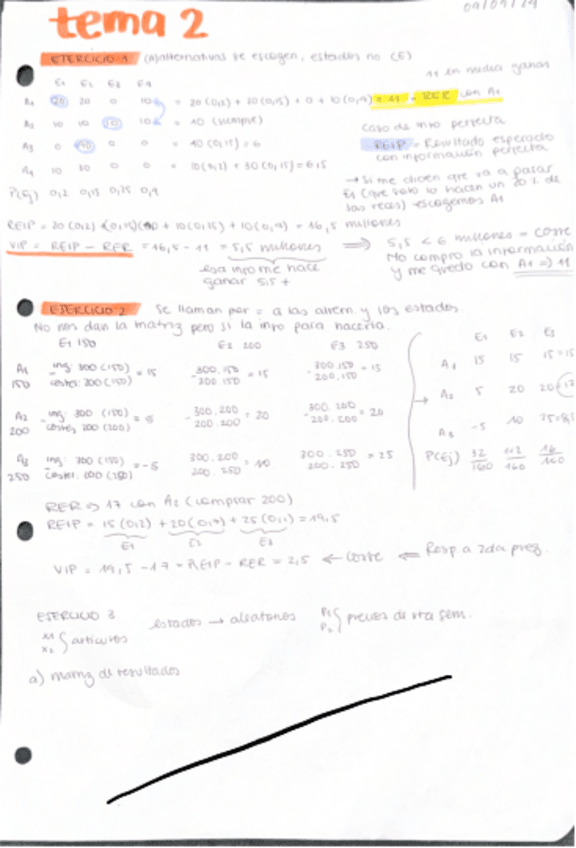 09/09/24
tema 2
EJERCICIO 1 (A) alternativas se escogen, estados no (E)
E1 E2 E3 E4
11 en media ganas
A1 20 20 0 10 = 20(0,2) + 20(0,15) + 0 + 10(0,4) = 11 = RER con A1
A2 10 10 10 10 = 10 (siempre)
caso de info perfecta
A3 0 40 0 0 = 40(0,15) = 6
REIP = Resultado esperado
con información perfecta
A4 10 30 0 0 = 10(0,2) + 30(0,15) = 6,5
→ Si me dicen que va a pasar
E1 (que solo lo hacen un 20% de
P(Ej) 0,2 0,15 0,25 0,4
las veces) escogemos A1
REIP = 20(0,2) + (0,15)40 + 10(0,25) + 10(0,4) = 16,5 millones
VIP = REIP - RER = 16,5 - 11 = 5,5 millones ⇒ 5,5 < 6 millones = coste
No compro la información
esa info me hace
y me quedo con A1 ⇒ 11
ganar 5,5 +
EJERCICIO 2 Se llaman por = a las altern. y los estados.
No nos dan la matriz pero si la info para hacerla.
E1 150 E2 200 E3 250
E1 E2 E3
A1 ing: 300 (150) = 15 300.150 = 15 300.150 = 15
150 costes: 200 (150) -200.150 200.150
A1 15 15 15
A2 ing: 300 (150) = 5 300.200 = 20 300.200 = 20
200 costes 200 (200) 200.200 200.200
A2 5 20 20
A3 -5 10 25
A3 ing: 300 (150) = -5 300.200 = 10 300.250 = 25
250 costes: 200 (250) 200.250 200.250
P(Ej) 32/160 112/160 16/160
RER ⇒ 17 con A2 (comprar 200)
REIP = 15(0,2) + 20(0,7) + 25(0,1) = 19,5
E1 E2 E3
VIP = 19,5 - 17 = REIP - RER = 2,5 ← coste ⇐ Resp. a 2da preg.
EJERCICIO 3
estados → aleatorios
P1 P2 } precios de vta sem.
x1 x2 } artículos
a) matriz de resultados